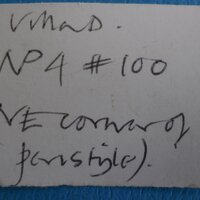 VMaD.
NP4 #100
(NE corner of
peristyle).